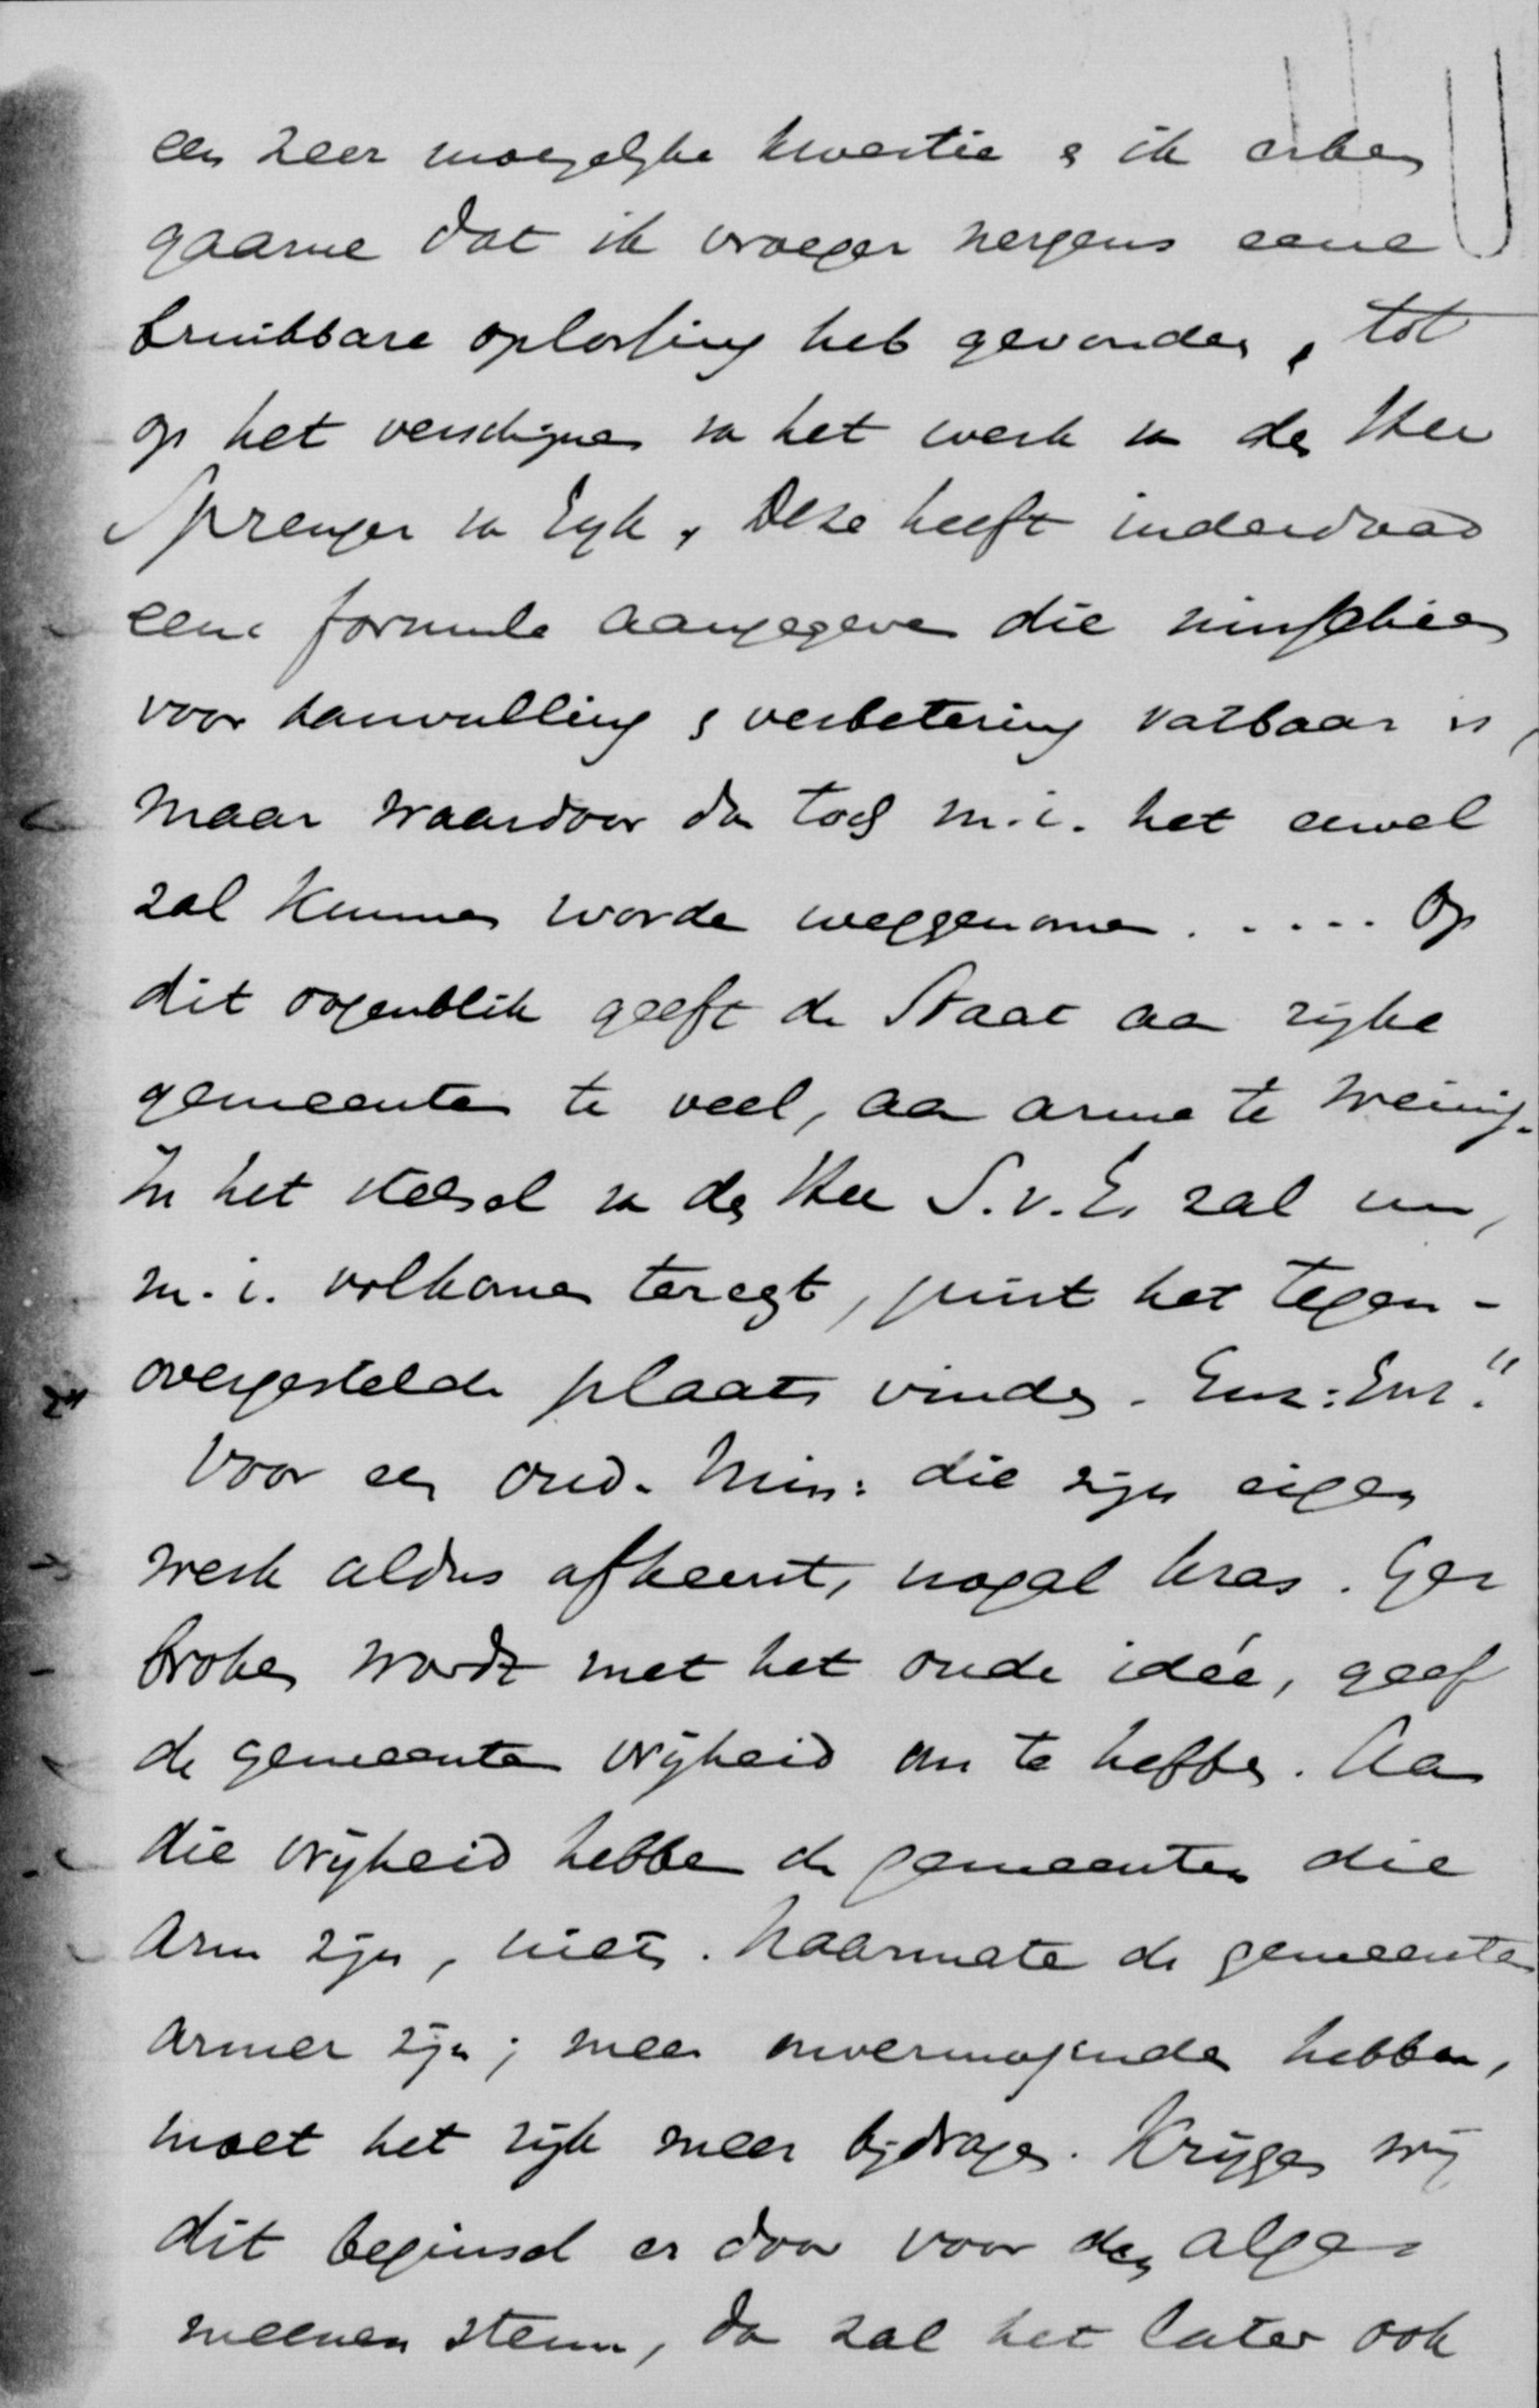 een zeer moeyelyke kwestie & ik erken
gaarne dat ik vroeger nergens eene
bruikbare oplossing heb gevonden, tot
op het verschijnen van het werk van den Heer
Sprenger van Eyk. Deze heeft inderdaad
eene formule aangegeven die misschien
voor aanvulling & verbetering vatbaar is,
maar waardoor dan toch m.i. het euvel
zal kunnen worden weggenomen. .... Op
dit oogenblik geeft de Staat aan rijke
gemeenten te veel, aan arme te weinig.
In het stelsel van den Heer S.v.E. zal nu,
m.i. volkomen teregt, juist het tegen-
overgestelde plaats vinden. Enz: Enz."
Voor een oud-Min: die zijn eigen
werk aldus afkeurt, nogal kras. Ge-
broken wordt met het oude idée, geef
de gemeenten vrijheid om te heffen. Aan
die vrijheid hebben de gemeenten die
arm zijn, niets. Naarmate de gemeenten
armer zijn; meer onvermogenden hebben,
moet het rijk meer bijdragen. Krijgen wij
dit beginsel er door voor den alge-
meenen steun, dan zal het later ook